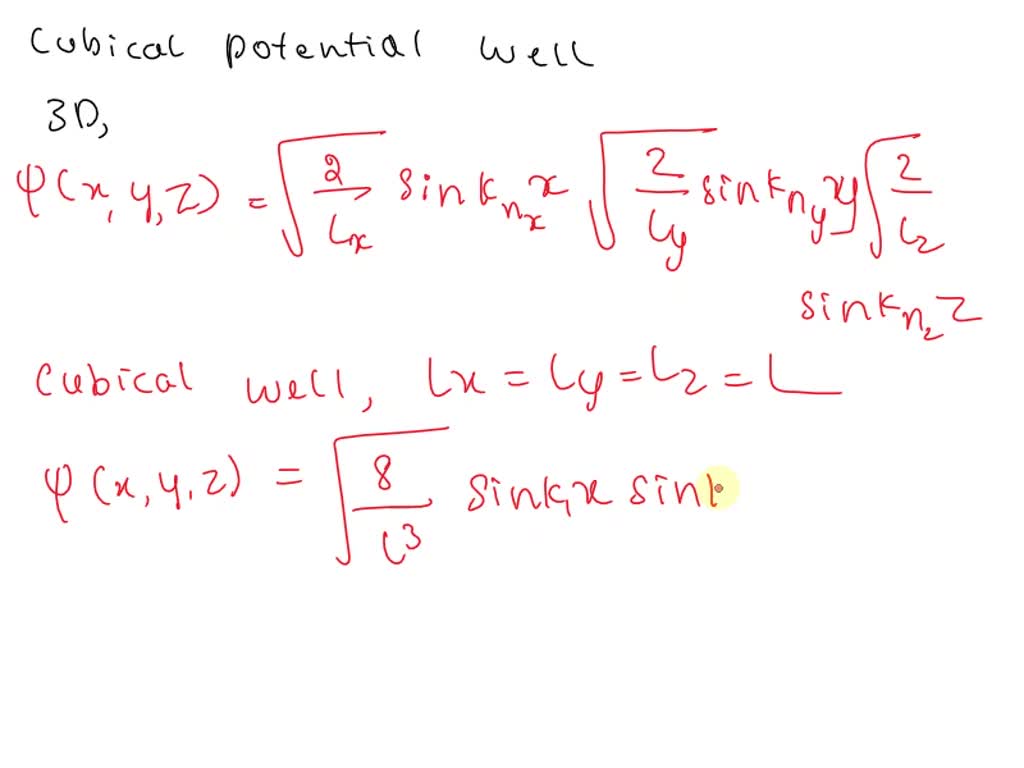 Cubical potential well
3D,
φ(x, y, z) = √(2/Lx) sin k_nx x √(2/Ly) sin k_ny y √(2/Lz)
sin k_nz z
Cubical well, Lx = Ly = Lz = L
φ(x, y, z) = √(8/L³) sin k₁x sin k